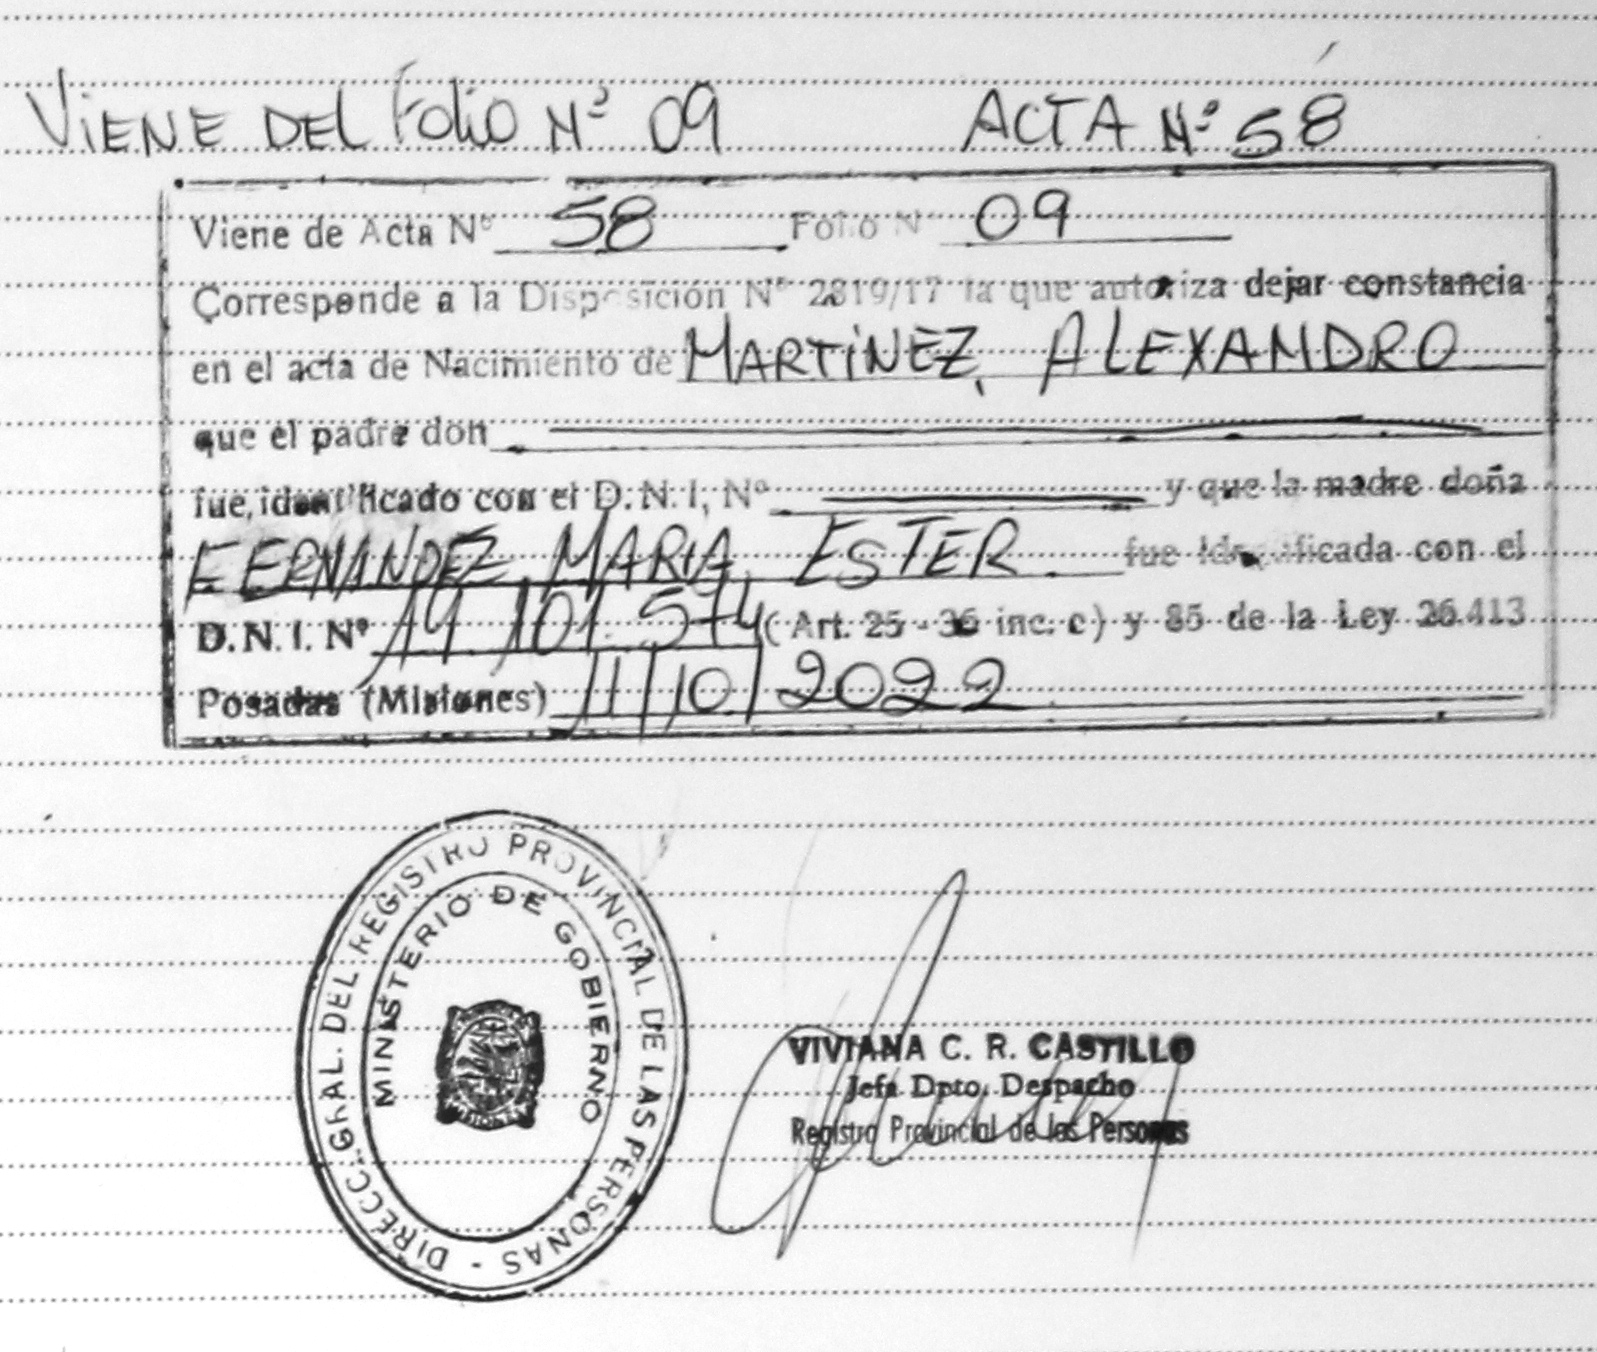 VIENE DEL FOLIO Nº 09 ACTA Nº 58
Viene de Acta Nº 58 Folio Nº 09
Corresponde a la Disposición Nº 2819/17 la que autoriza dejar constancia
en el acta de Nacimiento de MARTÍNEZ, ALEXANDRO
que el padre don
fue, identificado con el D.N.I, Nº y que la madre doña
FERNANDEZ, MARIA ESTER fue identificada con el
D.N.I. Nº 14.101.574 (Art. 25 - 36 inc. c) y 85 de la Ley 26.413
Posadas (Misiones) 11/10/2022
DIRECC. GRAL. DEL REGISTRO PROVINCIAL DE LAS PERSONAS -
MINISTERIO DE GOBIERNO
VIVIANA C. R. CASTILLO
Jefa Dpto. Despacho
Registro Provincial de las Personas